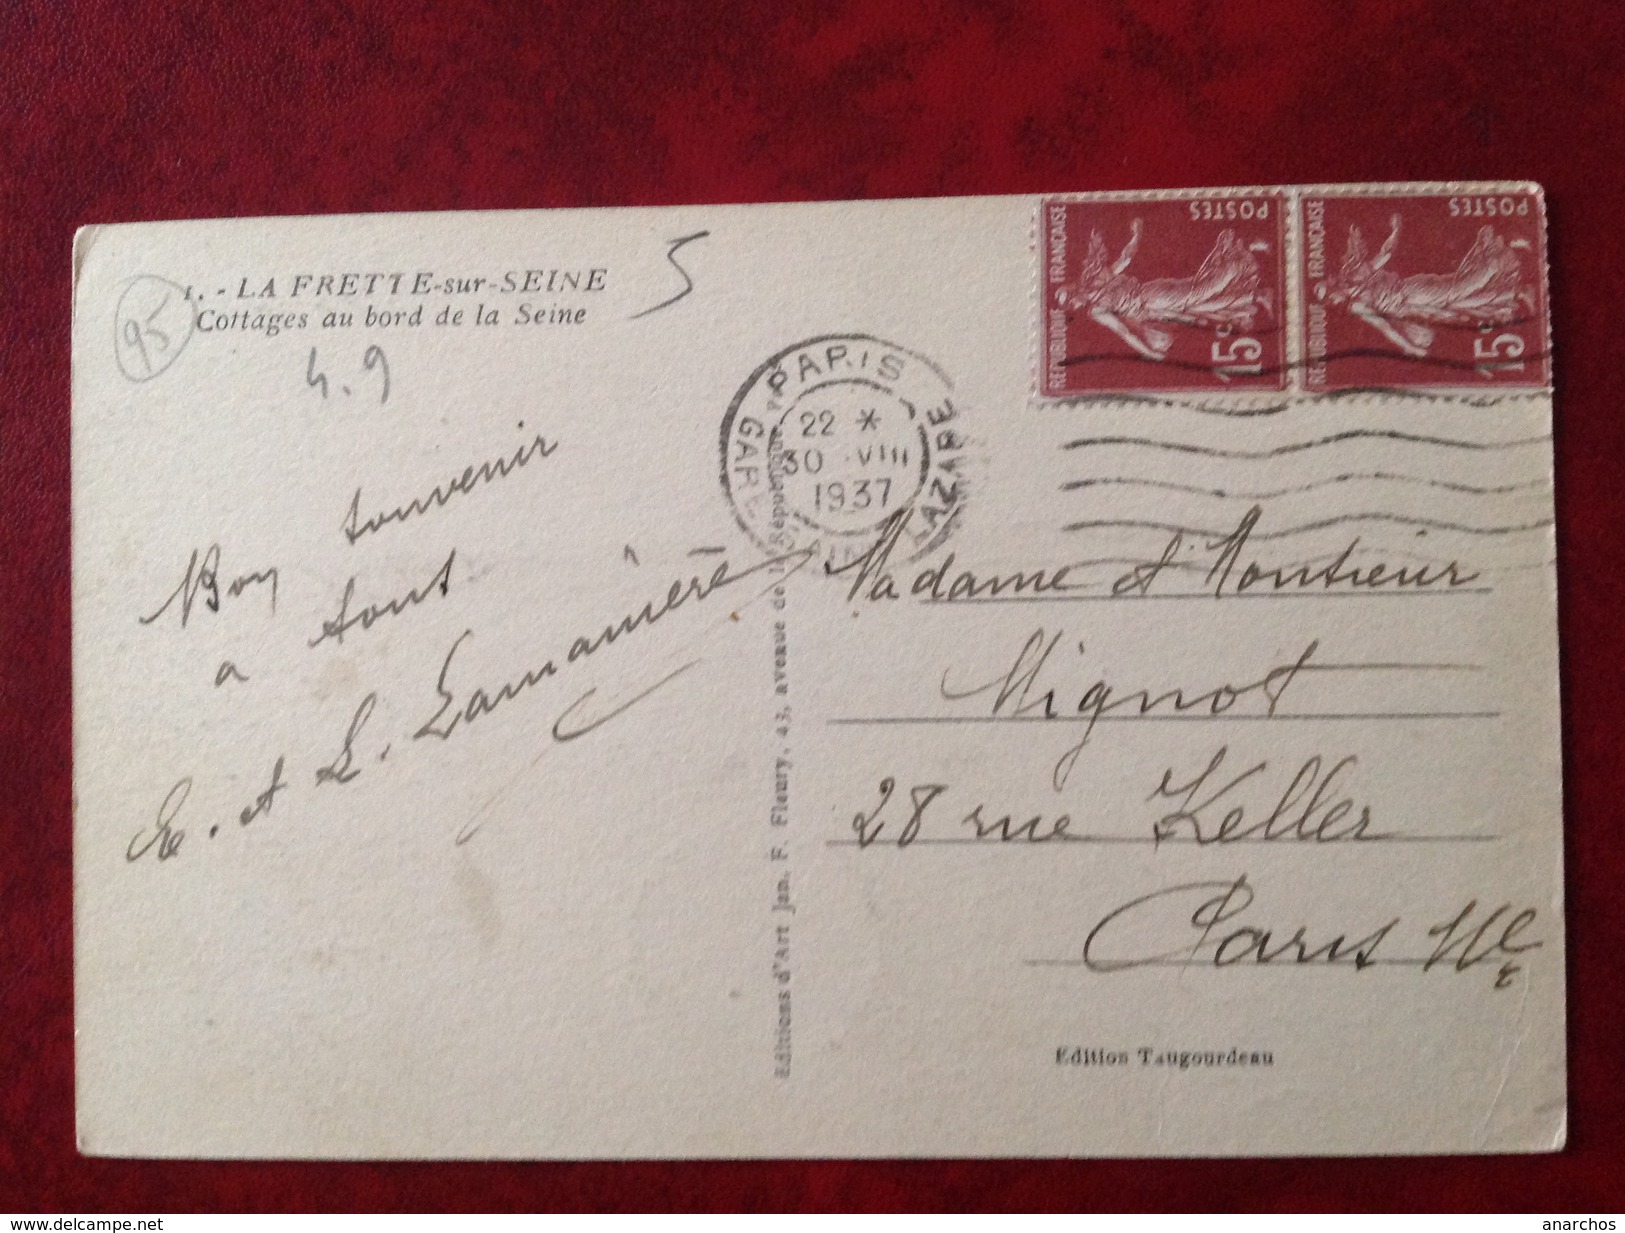 1. - LA FRETTE-sur-SEINE
Cottages au bord de la Seine
95
5
4.9
Bon souvenir
a tous
E. et L. Lamanière
Editions d'Art Jan. F. Fleury, 43, avenue de la République, Pa
PARIS
GARE LAZARE
22 *
30 VIII
1937
POSTES
REPUBLIQUE FRANÇAISE
15c
POSTES
REPUBLIQUE FRANÇAISE
15c
Madame et Monsieur
Mignot
28 rue Keller
Paris 11e
Edition Taugourdeau
www.delcampe.net
anarchos